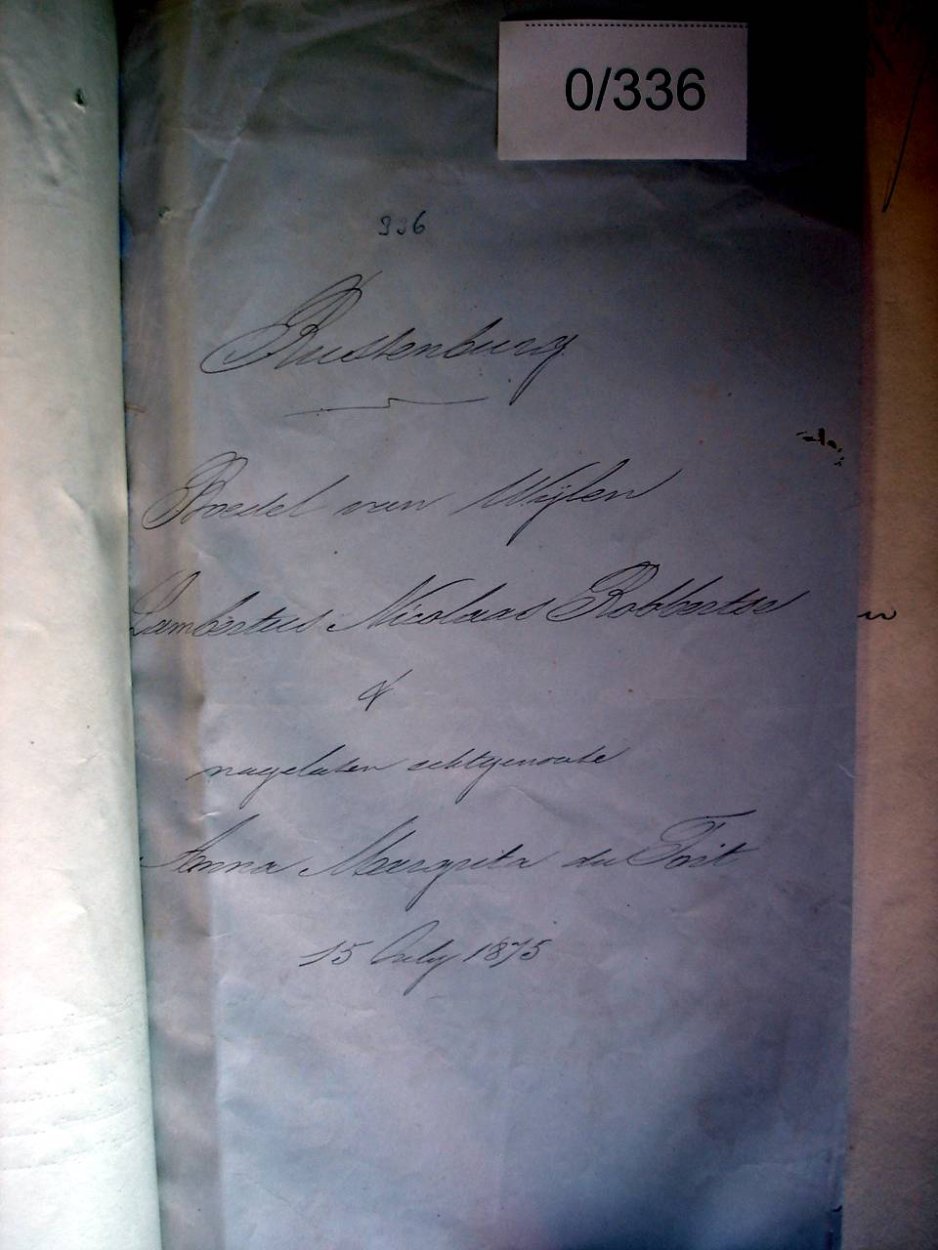 0/336
336
Rustenburg
Boedel van Wijlen
Lambertus Nicolaas Robbertse
&
nagelaten echtgenoote
Anna Margrita du Toit
15 July 1875